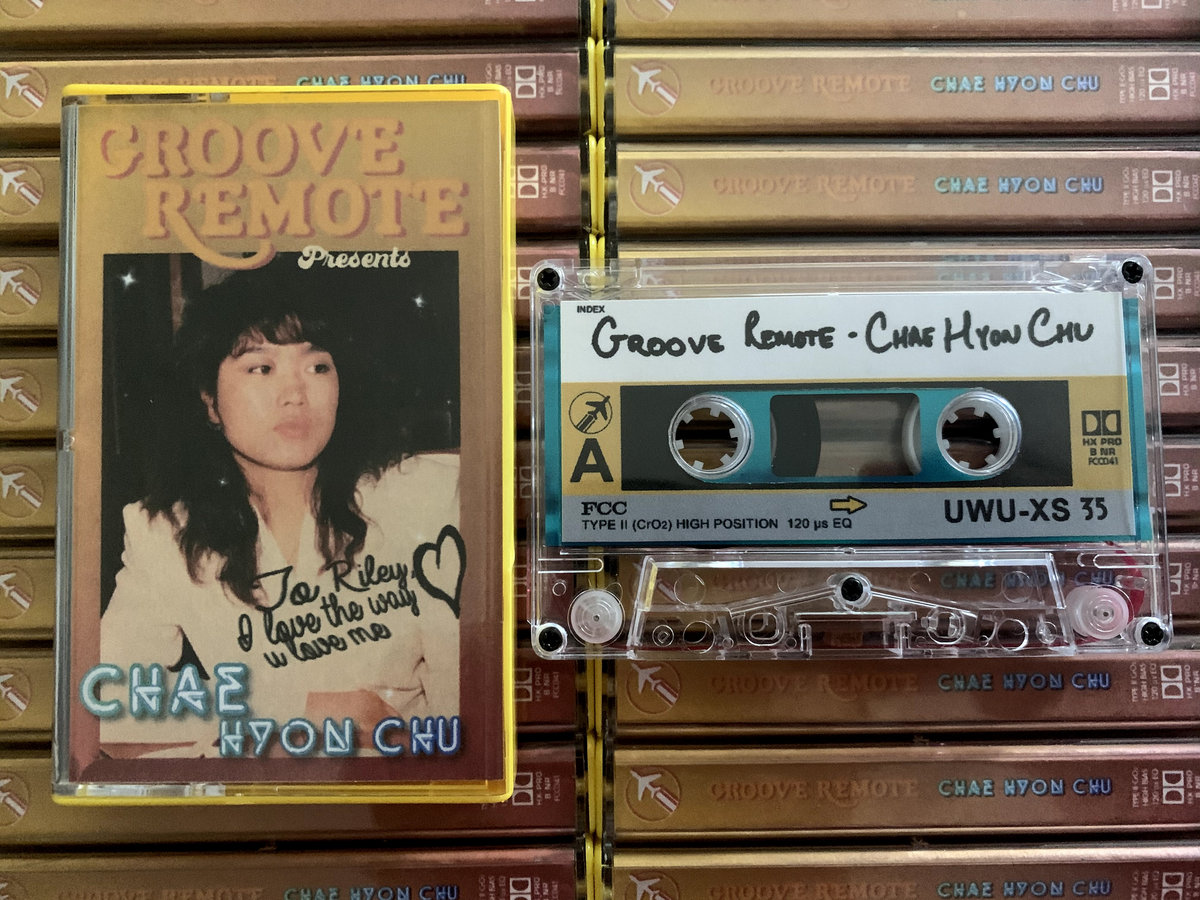 GROOVE
REMOTE
Presents
To Riley,
I love the way
u love me
CHAE
HYON CHU
INDEX
GROOVE REMOTE - CHAE HYON CHU
A
HX PRO
B NR
FCC041
FCC
TYPE II (CrO2) HIGH POSITION 120 µs EQ
UWU-XS 35
GROOVE REMOTE CHAE HYON CHU
HX PRO
B NR
FCC041
GROOVE REMOTE CHAE HYON CHU
GROOVE REMOTE CHAE HYON CHU
GROOVE REMOTE CHAE HYON CHU
GROOVE REMOTE CHAE HYON CHU
GROOVE REMOTE CHAE HYON CHU
GROOVE REMOTE CHAE HYON CHU